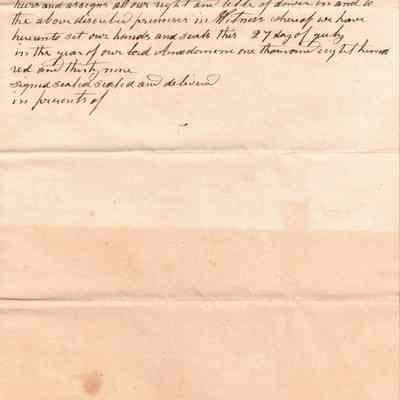 heirs and assigns all our right and title of dower in and to
the above discribed primisses in Witness whereof we have
hereunto set our hands and seals this 27 day of july
in the year of our lord Anodomone one thousand eight hund
red and thirty nine
signed sealed sealed and delivered
in presents of